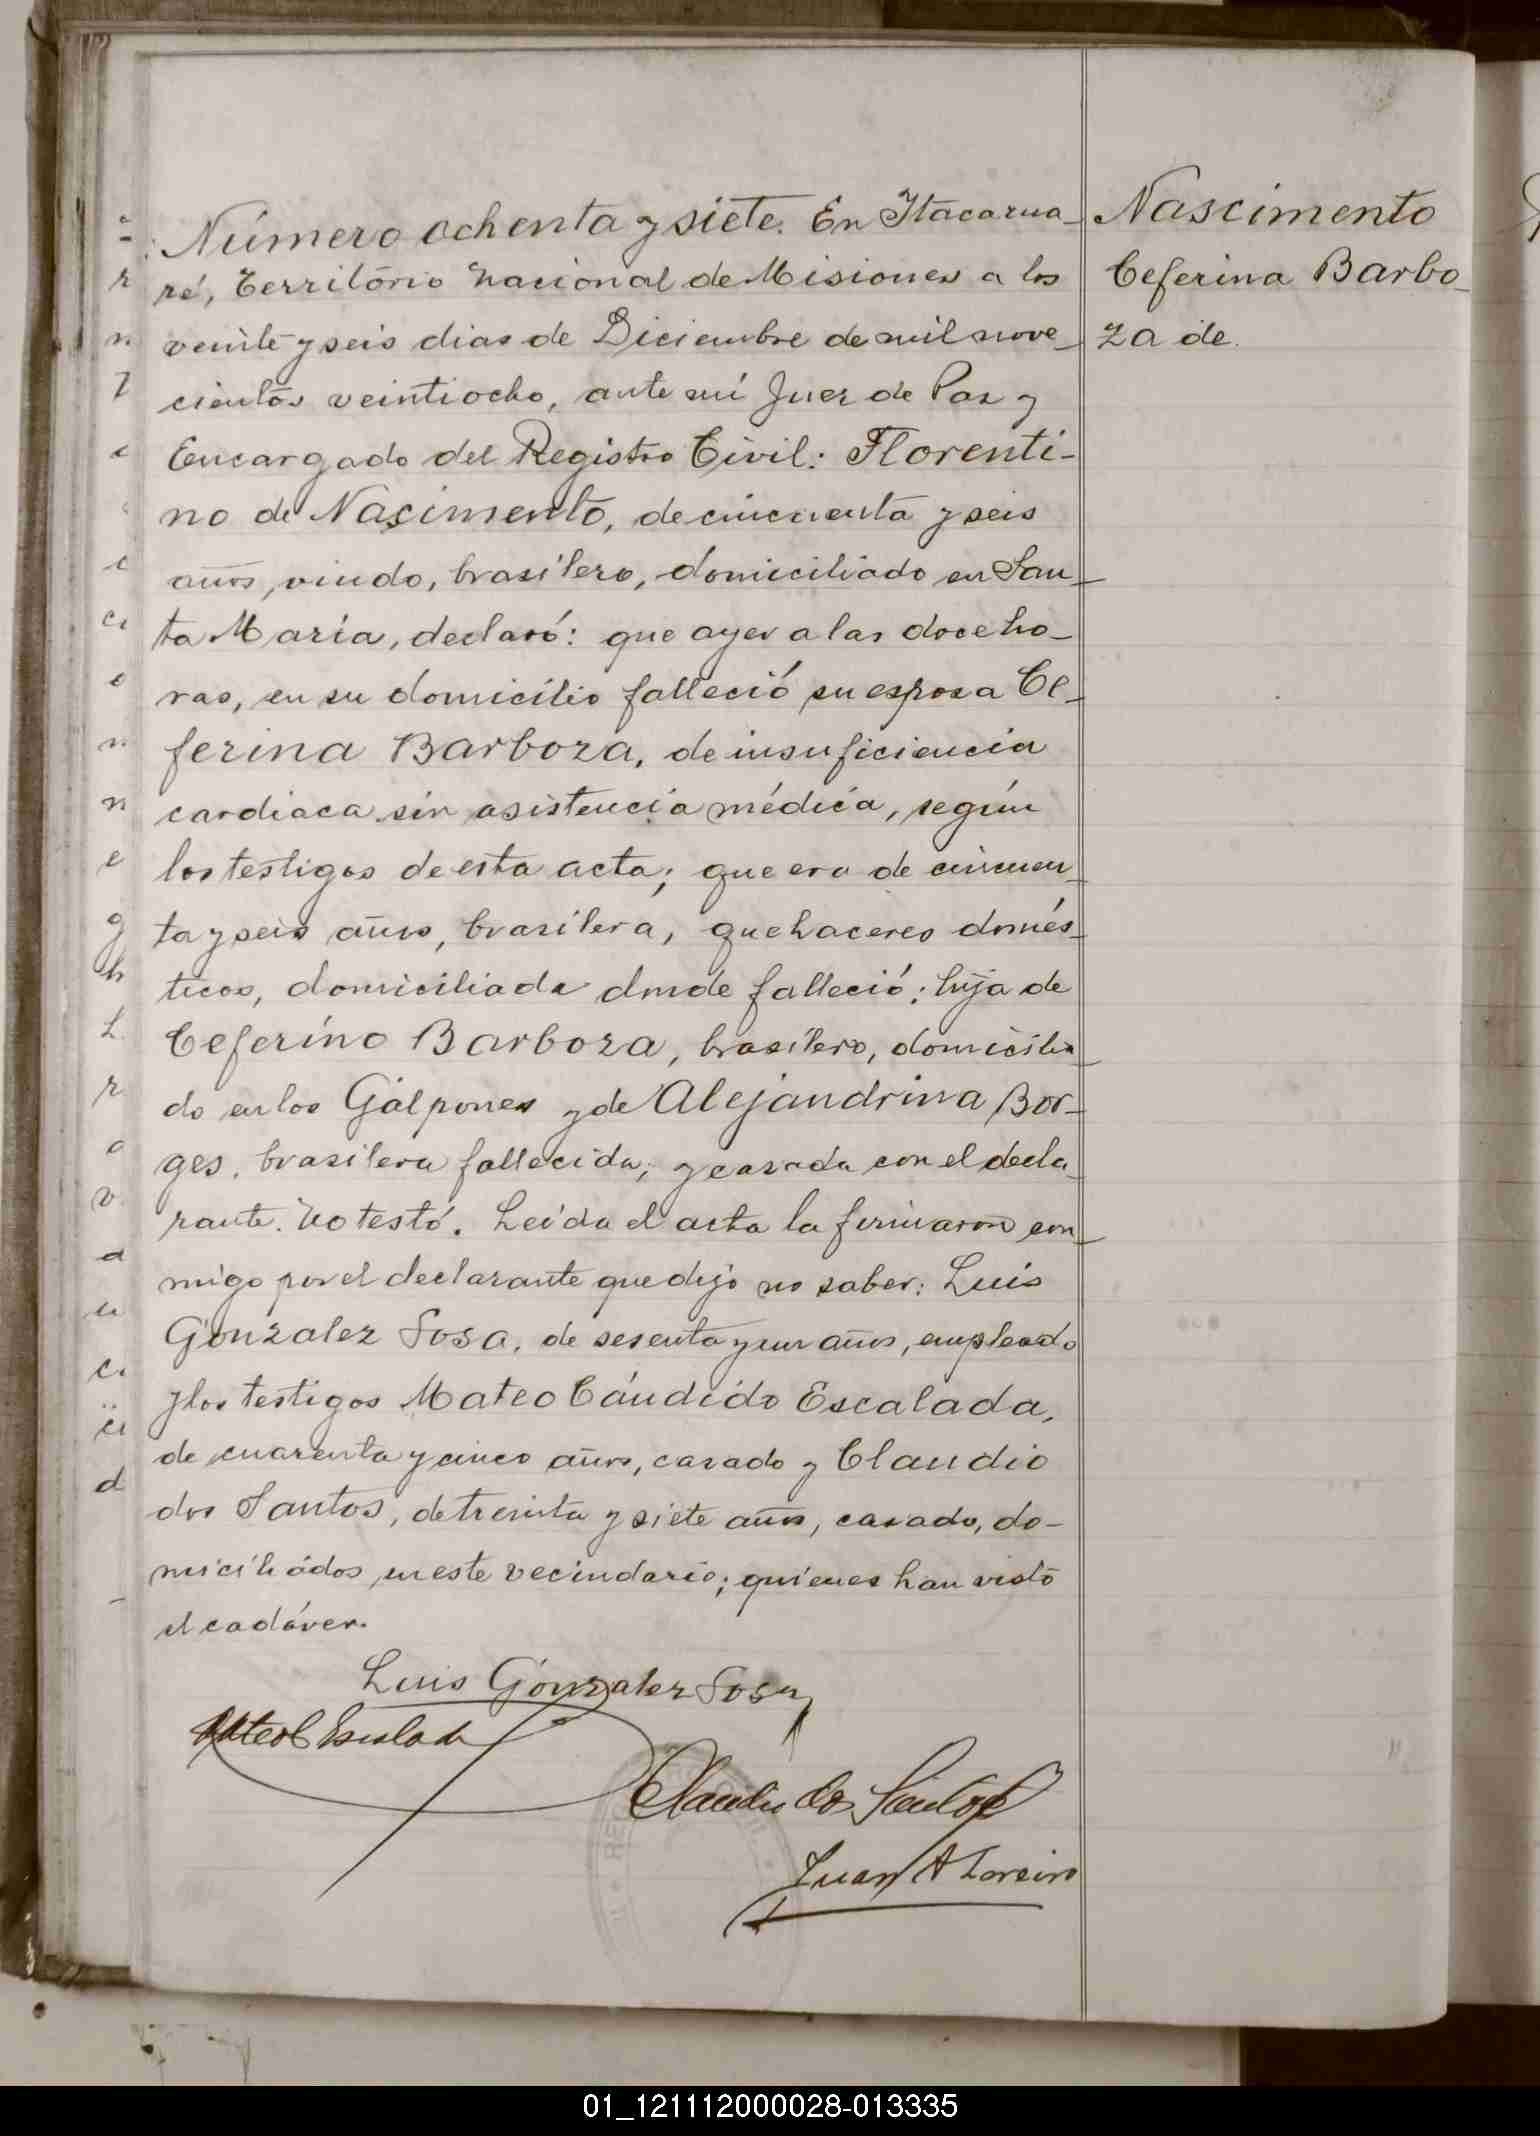 Número ochenta y siete. En Itacarua-
ré, Território Nacional de Misiones a los
veinte y seis dias de Diciembre de mil nove-
cientos veintiocho, ante mi Juez de Paz y
Encargado del Registro Civil: Florenti-
no de Nascimento, de cincuenta y seis
años, viudo, brasilero, domiciliado en San-
ta María, declaró: que ayer a las doce ho-
ras, en su domicilio falleció su esposa Ce-
ferina Barboza, de insuficiencia
cardiaca sin asistencia médica, según
los testigos de esta acta; que era de cincuen-
ta y seis años, brasilera, quehaceres domés-
ticos, domiciliada donde falleció; hija de
Ceferino Barboza, brasilero, domicilia-
do en los Galpones y de Alejandrina Bor-
ges, brasilera fallecida; y casada con el decla-
rante. No testó. Leída el acta la firmaron con-
migo por el declarante que dijo no saber: Luis
Gonzalez Sosa, de sesenta y un años, empleado
y los testigos Mateo Cándido Escalada,
de cuarenta y cinco años, casado y Claudio
dos Santos, de treinta y siete años, casado, do-
miciliados en este vecindario; quienes han visto
el cadáver.
Luis Gonzalez Sosa
Mateo C Escalada
Claudio dos Santos
Juan A Loreiro
Nascimento
Ceferina Barbo-
za de.
01_121112000028-013335